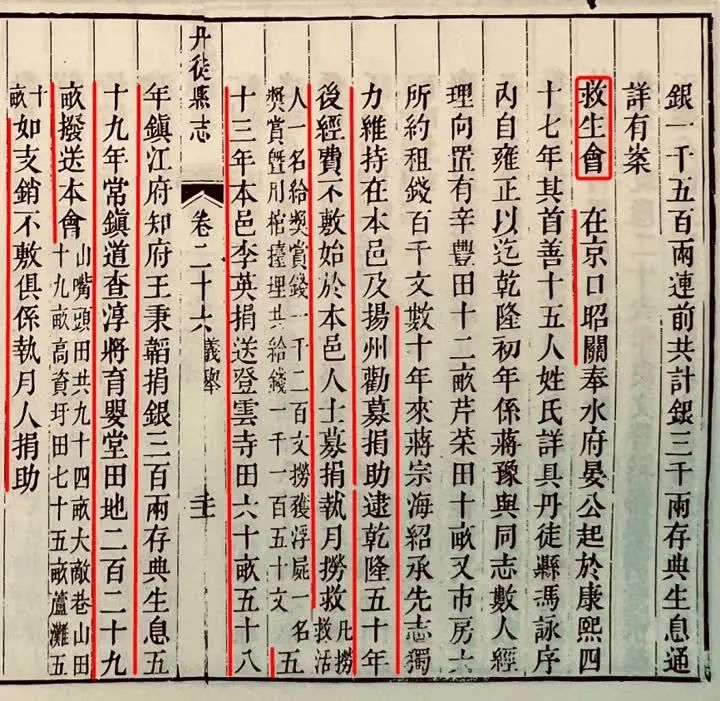 銀一千五百兩連前共計銀三千兩存典生息通
詳有案
救生會 在京口昭關奉水府晏公起於康熙四
十七年其首善十五人姓氏詳具丹徒縣馮詠序
內自雍正以迄乾隆初年係蔣豫與同志數人經
理向置有辛豐田十二畝芹菜田十畝又市房六
所約租錢百千文數十年來蔣宗海紹承先志獨
力維持在本邑及揚州勸募捐助逮乾隆五十年
後經費不敷始於本邑人士募捐執月撈救
凡撈
救活
人一名給獎賞錢一千二百文撈獲浮屍一名
獎賞曁用棺擡埋共給錢一千一百五十文
五
十三年本邑李英捐送登雲寺田六十畝五十八
丹徒縣志
卷二十六
義舉
年鎮江府知府王秉韜捐銀三百兩存典生息五
十九年常鎮道查淳將育嬰堂田地二百二十九
畝撥送本會
山嘴頭田共九十四畝大敵巷山田
十九畝高資圩田七十五畝蘆灘五
十
畝
如支銷不敷俱係執月人捐助